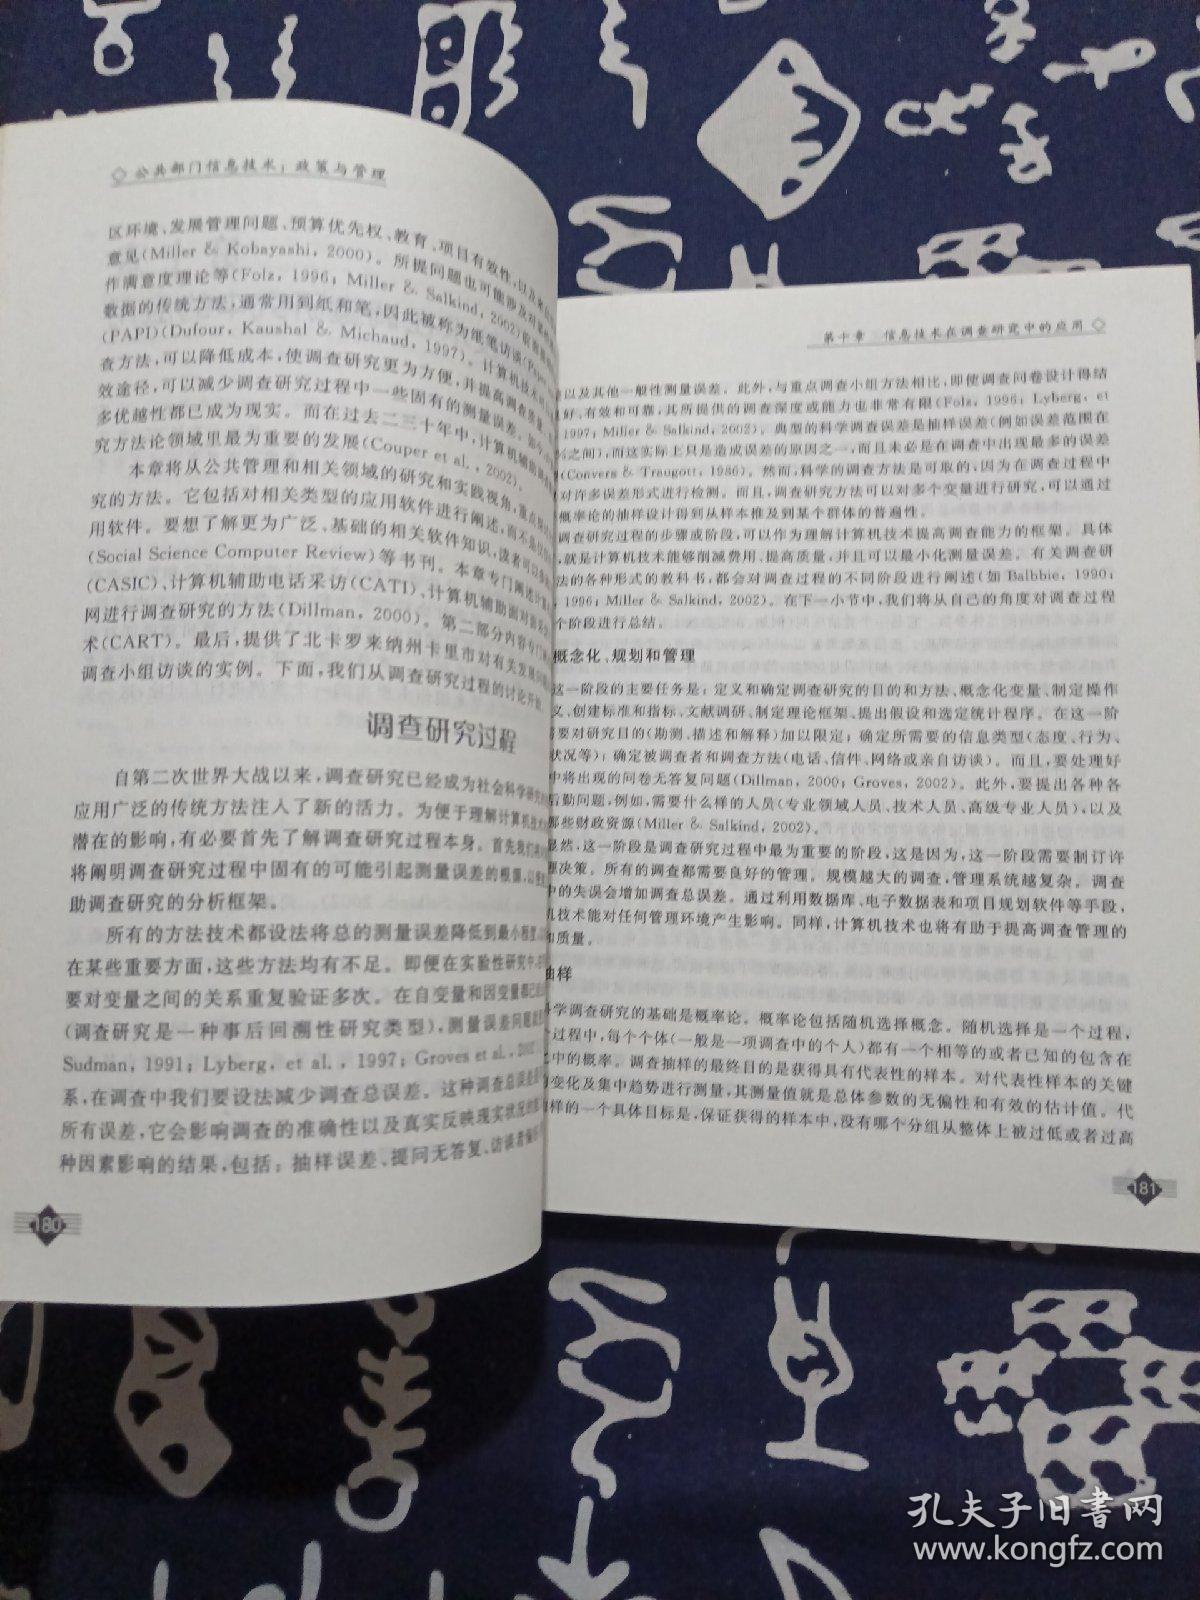 ◇ 公共部门信息技术：政策与管理
区环境、发展管理问题、预算优先权、教育、项目有效性,以及
意见(Miller & Kobayashi, 2000)。所提问题也可能涉及对
作满意度理论等(Folz, 1996; Miller & Salkind, 2002)
数据的传统方法,通常用到纸和笔,因此被称为纸笔访谈
(PAPI)(Dufour, Kaushal & Michaud, 1997)。计算机技术
查方法,可以降低成本,使调查研究更为方便,并提高调查质量
效途径,可以减少调查研究过程中一些固有的测量误差。如今
多优越性都已成为现实。而在过去二三十年中,计算机辅助
究方法论领域里最为重要的发展(Couper et al., 2002)。
本章将从公共管理和相关领域的研究和实践视角,重点
究的方法。它包括对相关类型的应用软件进行阐述,而不是
用软件。要想了解更为广泛、基础的相关软件知识,读者可以
(Social Science Computer Review)等书刊。本章专门阐述计算
(CASIC)、计算机辅助电话采访(CATI)、计算机辅助面对面
网进行调查研究的方法(Dillman, 2000)。第二部分内容专门
术(CART)。最后,提供了北卡罗来纳州卡里市对有关发展
调查小组访谈的实例。下面,我们从调查研究过程的讨论开始。
调查研究过程
自第二次世界大战以来,调查研究已经成为社会科学研究
应用广泛的传统方法注入了新的活力。为便于理解计算机技术
潜在的影响,有必要首先了解调查研究过程本身。首先我们
将阐明调查研究过程中固有的可能引起测量误差的根源,以
助调查研究的分析框架。
所有的方法技术都设法将总的测量误差降低到最小程度
在某些重要方面,这些方法均有不足。即便在实验性研究中
要对变量之间的关系重复验证多次。在自变量和因变量都已
(调查研究是一种事后回溯性研究类型),测量误差问题
Sudman, 1991; Lyberg, et al., 1997; Groves et al., 2002
系,在调查中我们要设法减少调查总误差。这种调查总误差
所有误差,它会影响调查的准确性以及真实反映现实状况的
种因素影响的结果,包括：抽样误差、提问无答复、访谈者
180
第十章 信息技术在调查研究中的应用 ◇
以及其他一般性测量误差。此外,与重点调查小组方法相比,即使调查问卷设计得结
良好、有效和可靠,其所提供的调查深度或能力也非常有限(Folz, 1996; Lyberg, et
1997; Miller & Salkind, 2002)。典型的科学调查误差是抽样误差(例如误差范围在
%之间),而这实际上只是造成误差的原因之一,而且未必是在调查中出现最多的误差
(Convers & Traugott, 1986)。然而,科学的调查方法是可取的,因为在调查过程中
对许多误差形式进行检测。而且,调查研究方法可以对多个变量进行研究,可以通过
概率论的抽样设计得到从样本推及到某个群体的普遍性。
调查研究过程的步骤或阶段,可以作为理解计算机技术提高调查能力的框架。具体
,就是计算机技术能够削减费用、提高质量,并且可以最小化测量误差。有关调查研
法的各种形式的教科书,都会对调查过程的不同阶段进行阐述(如 Balbbie, 1990;
, 1996; Miller & Salkind, 2002)。在下一小节中,我们将从自己的角度对调查过程
个阶段进行总结。
概念化、规划和管理
这一阶段的主要任务是：定义和确定调查研究的目的和方法、概念化变量、制定操作
义、创建标准和指标、文献调研、制定理论框架、提出假设和选定统计程序。在这一阶
需要对研究目的(勘测、描述和解释)加以限定；确定所需要的信息类型(态度、行为、
状况等)；确定被调查者和调查方法(电话、信件、网络或亲自访谈)。而且,要处理好
中将出现的问卷无答复问题(Dillman, 2000; Groves, 2002)。此外,要提出各种各
后勤问题,例如,需要什么样的人员(专业领域人员、技术人员、高级专业人员),以及
那些财政资源(Miller & Salkind, 2002)。
显然,这一阶段是调查研究过程中最为重要的阶段,这是因为,这一阶段需要制订许
要决策。所有的调查都需要良好的管理。规模越大的调查,管理系统越复杂。调查
中的失误会增加调查总误差。通过利用数据库、电子数据表和项目规划软件等手段,
机技术能对任何管理环境产生影响。同样,计算机技术也将有助于提高调查管理的
和质量。
抽样
科学调查研究的基础是概率论。概率论包括随机选择概念。随机选择是一个过程,
个过程中,每个个体(一般是一项调查中的个人)都有一个相等的或者已知的包含在
中的概率。调查抽样的最终目的是获得具有代表性的样本。对代表性样本的关键
变化及集中趋势进行测量,其测量值就是总体参数的无偏性和有效的估计值。代
样的一个具体目标是,保证获得的样本中,没有哪个分组从整体上被过低或者过高
181
孔夫子旧书网
www.kongfz.com